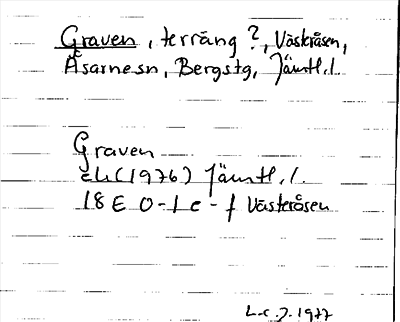 Graven, terräng?, Västeråsen,
Åsarne sn, Bergs tg, Jämtl. l.
Graven
ek (1976) Jämtl. l.
18E 0-1 e-f Västeråsen
L-E. J. 1977